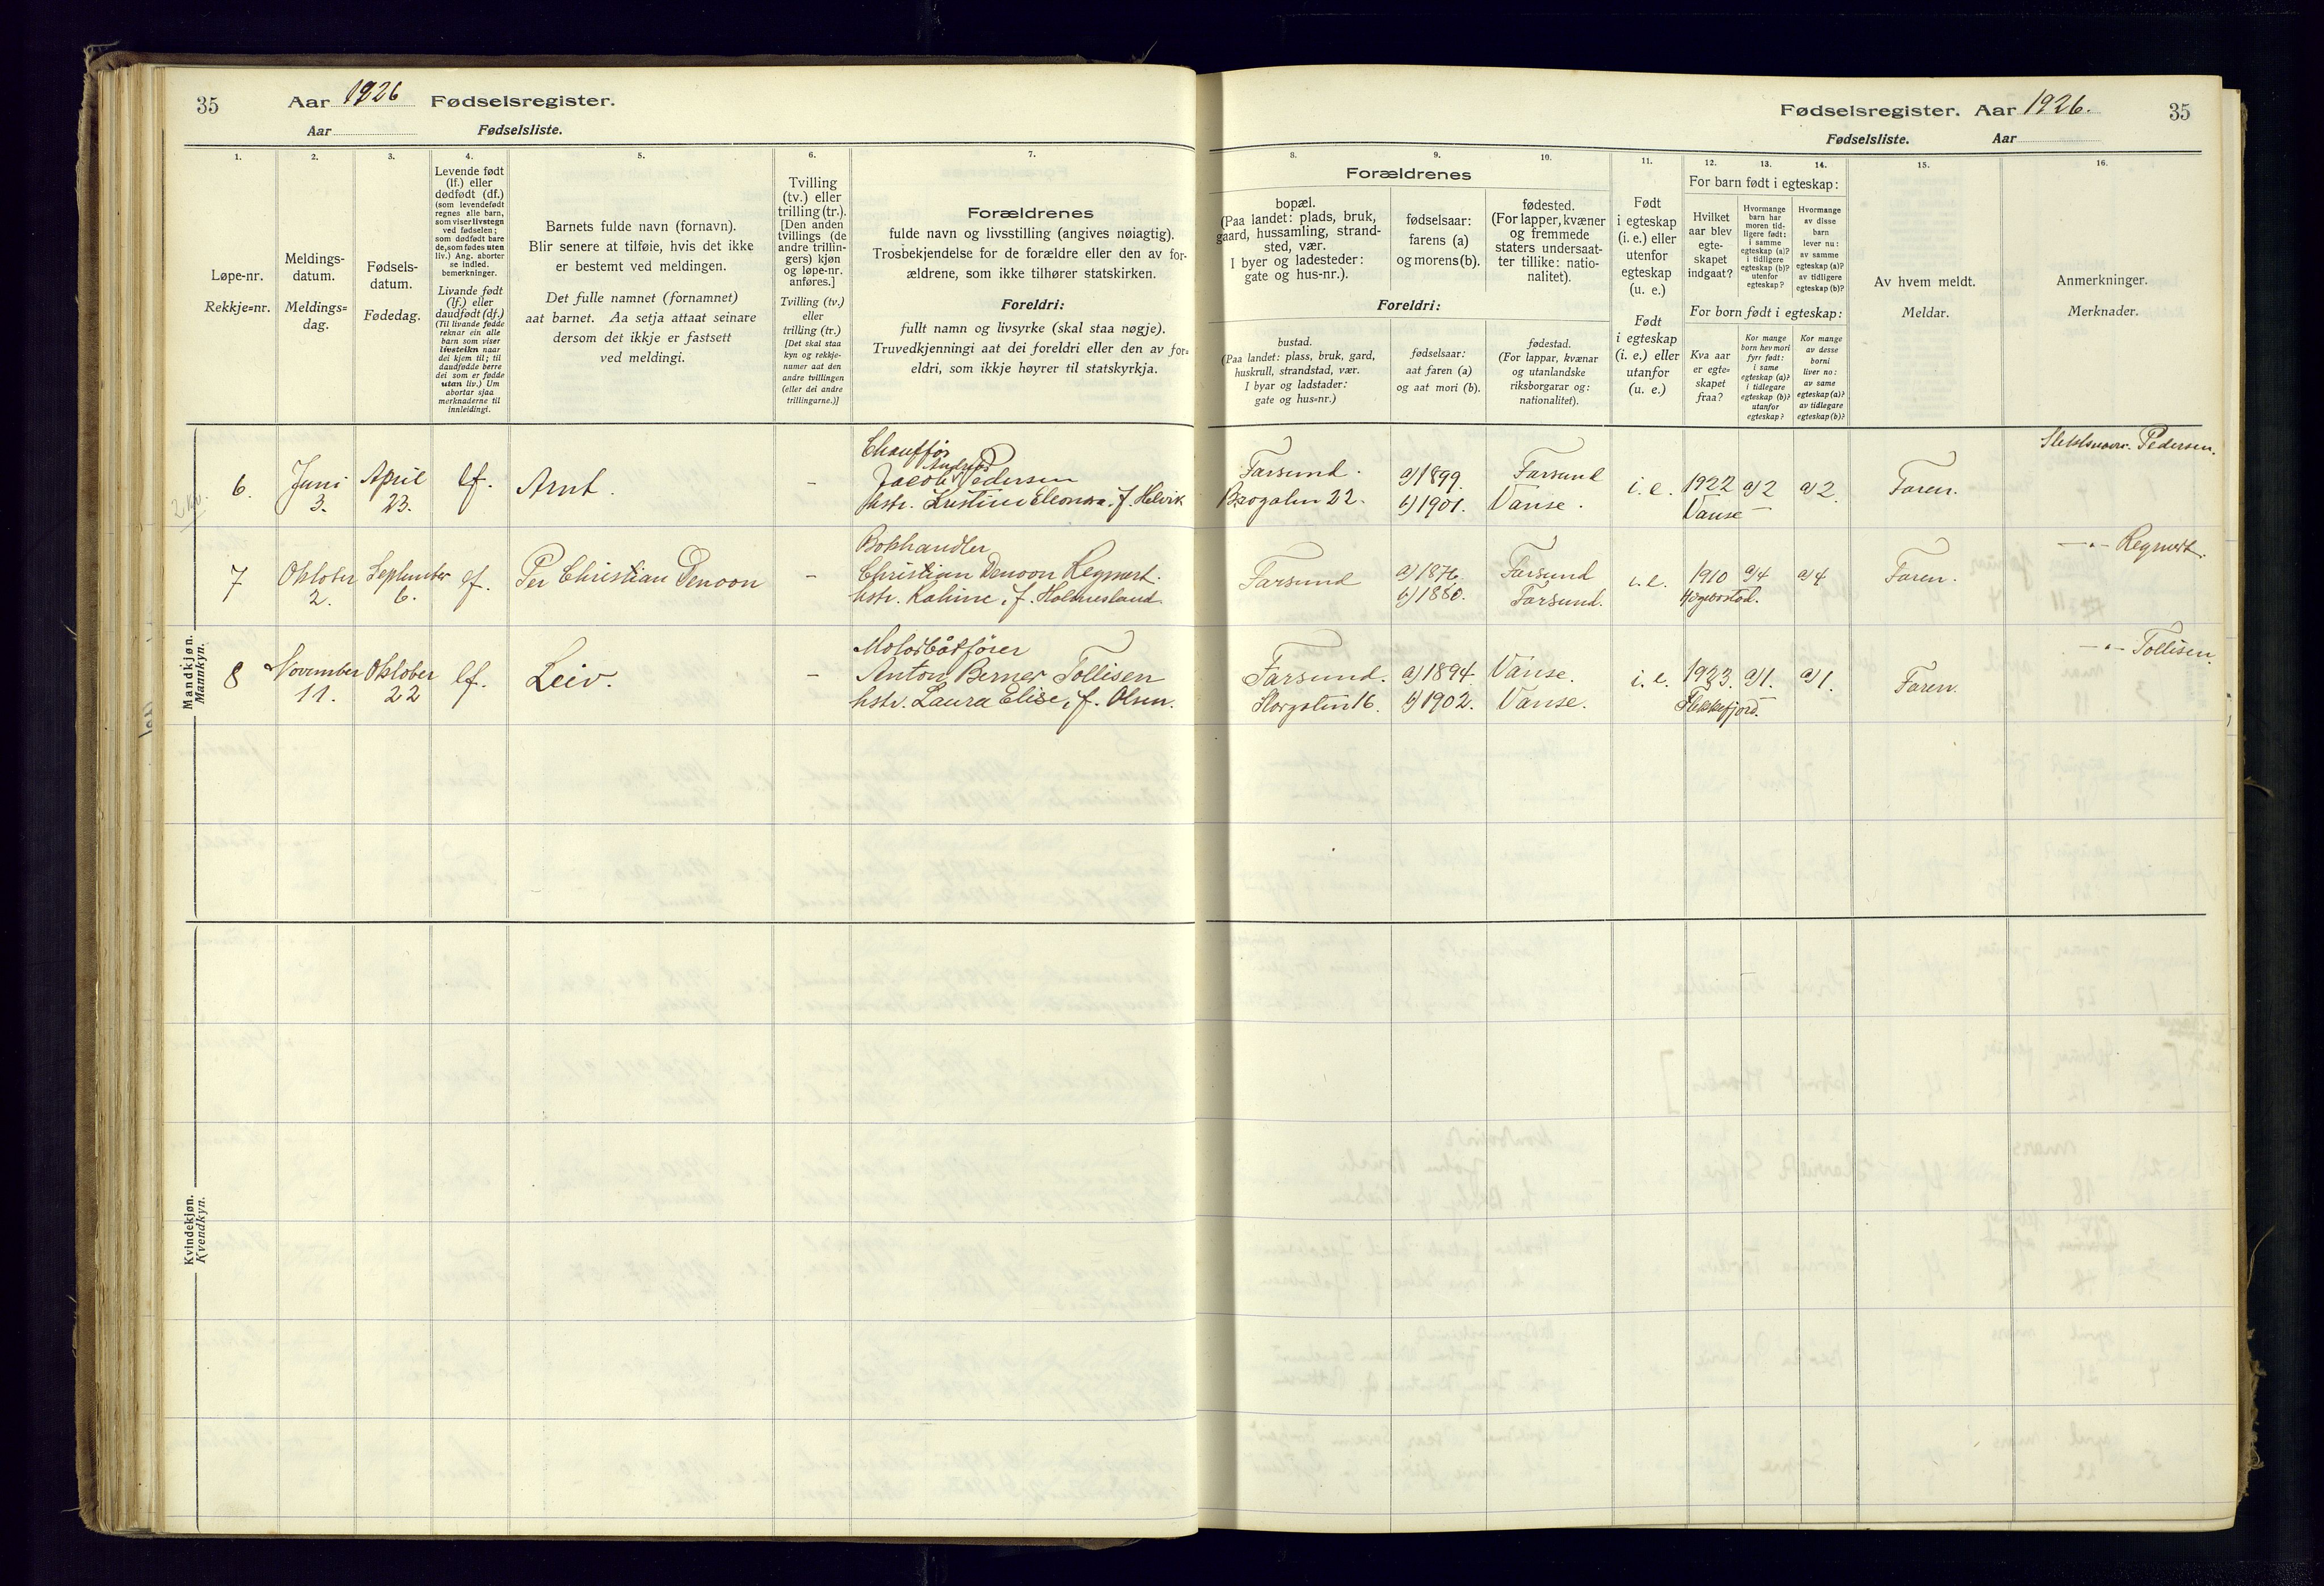 35 Aar 1926 Fødselsregister.
Aar Fødselsliste.
1.
2.
3.
4.
5.
6.
7.
Løpe-nr.
Rekkje=nr.
Meldings-
datum.
Meldings=
dag.
Fødsels-
datum.
Fødedag.
Levende født
(lf.) eller
dødfødt (df.)
(som levendefødt
regnes alle barn,
som viser livstegn
ved fødselen;
som dødfødt bare
de, som fødes uten
liv.) Ang. aborter
se indled.
bemerkninger.
Livande født
(lf.) eller
daudfødt (df.)
(Til livande fødde
reknar ein alle
barn som viser
livsteikn naar
dei kjem til; til
daudfødde berre
dei som er fødde
utan liv.) Um
abortar sjaa
merknaderne til
innleidingi.
Barnets fulde navn (fornavn).
Blir senere at tilføie, hvis det ikke
er bestemt ved meldingen.
Det fulle namnet (fornamnet)
aat barnet. Aa setja attaat seinare
dersom det ikkje er fastsett
ved meldingi.
Tvilling
(tv.) eller
trilling (tr.).
[Den anden
tvillings (de
andre trillin-
gers) kjøn
og løpe-nr.
anføres.]
Tvilling (tv.)
eller
trilling (tr.)
[Det skal staa
kyn og rekkje-
numer aat den
andre tvillingen
(eller dei andre
trillingarne.)]
Forældrenes
fulde navn og livsstilling (angives nøiagtig).
Trosbekjendelse for de forældre eller den av for-
ældrene, som ikke tilhører statskirken.
Foreldri:
fullt namn og livsyrke (skal staa nøgje).
Truvedkjenningi aat dei foreldri eller den av for=
eldri, som ikkje høyrer til statskyrkja.
Mandkjøn.
Mannkyn.
6.
Juni
3.
April
23.
lf.
Arnt.
–
Chauffør
Andreas
Jacob Pedersen
hstr. Kristine Eleonora, f. Helvik
7
Oktober
2.
September
6.
lf.
Per Christian Denoon
–
Bokhandler
Christian Denoon Regnort.
hstr. Kaline, f. Holmesland.
8
November
11.
Oktober
22
lf.
Leiv.
–
Motorbåtfører
Anton Berner Tollisen
hstr. Laura Elise, f. Olsen.
Kvindekjøn.
Kvendkyn.
Fødselsregister. Aar 1926. 35
Fødselsliste. Aar
8.
9.
10.
11.
12.
13.
14.
15.
16.
Forældrenes
bopæl.
(Paa landet: plads, bruk,
gaard, hussamling, strand-
sted, vær.
I byer og ladesteder:
gate og hus-nr.).
fødselsaar:
farens (a)
og morens (b).
fødested.
(For lapper, kvæner
og fremmede
staters undersaat-
ter tillike: natio-
nalitet).
Foreldri:
bustad.
(Paa landet: plass, bruk, gard,
huskrull, strandstad, vær.
I byar og ladstader:
gate og hus=nr.)
fødselsaar:
aat faren (a)
og aat mori (b).
fødestad.
(For lappar, kvænar
og utanlandske
riksborgarar og:
nationalitet).
Født
i egteskap
(i. e.) eller
utenfor
egteskap
(u. e.)
Født
i egteskap
(i. e.) eller
utanfor
(u. e.)
For barn født i egteskap:
Hvilket
aar blev
egte-
skapet
indgaat?
Hvormange
barn har
moren tid-
ligere født:
i samme
egteskap (a)?
i tidligere
egteskap (b)?
utenfor
egteskap?
Hvormange
av disse
barn
lever nu:
av samme
egteskap (a)?
av tidligere
egteskap (b)?
For born født i egteskap:
Kva aar
er egte=
skapet
fraa?
Kor mange
born hev mori
fyrr født:
i same
egteskap (a)?
i tidlegare
egteskap (b)?
utanfor
egteskap?
Kor mange
av desse
borni
liver no:
av same
egteskap (a)?
av tidlegare
egteskap (b)?
Av hvem meldt.
Meldar.
Anmerkninger.
Merknader.
Farsund.
Brogaten 22.
a) 1899.
b) 1901.
Farsund
Vanse.
i. e.
1922
Vanse
a) 2
–
a) 2.
Faren.
Slektsnavn. Pedersen.
Farsund
a) 1876.
b) 1880.
Farsund
Farsund.
i. e.
1910
Hægebostad.
a) 4
a) 4
Faren.
–"– Regnort.
Farsund.
Storgaten 16.
a) 1894.
b) 1902.
Vanse.
Vanse.
i. e.
1923.
Flekkefjord.
a) 1.
–
a) 1.
Faren.
–"– Tollisen.